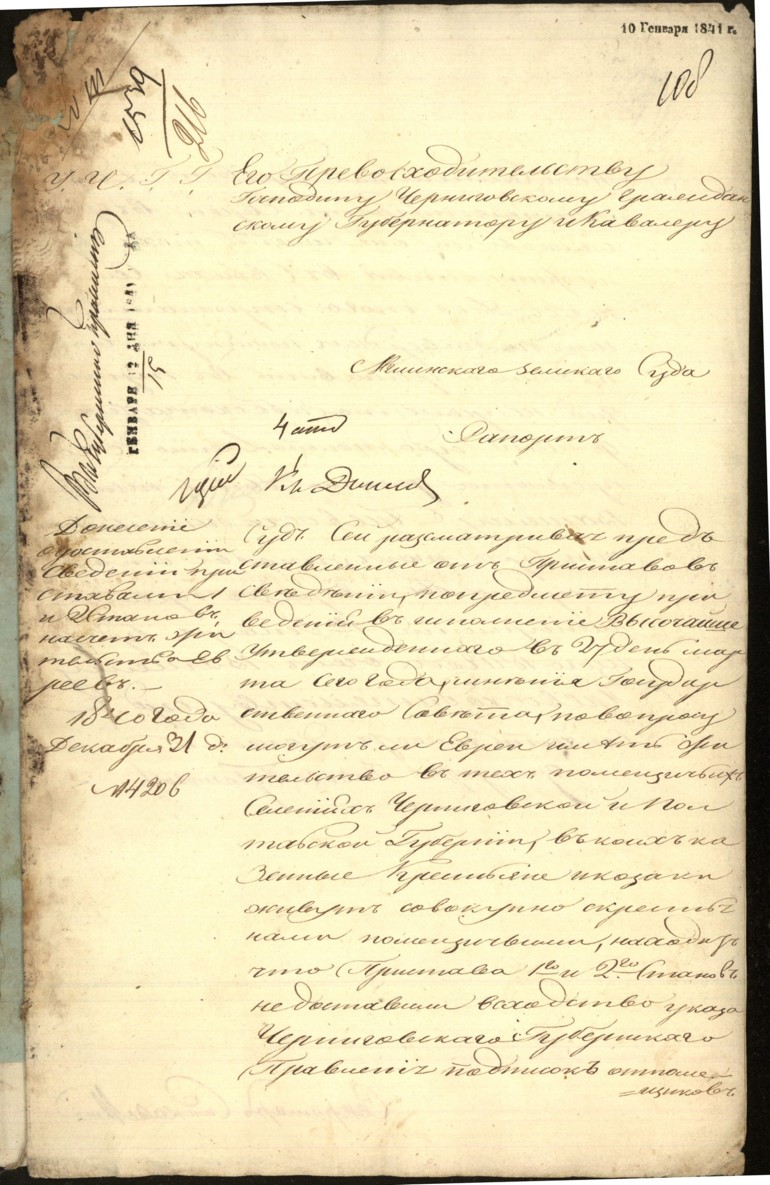 10 Генваря 1841 г.
108
216
Его Превосходительству
Господину Черниговскому Граждан
скому Губернатору и Кавалеру
ГЕНВАРЯ 12 ДНЯ 1841
15
Въ Губернское Правленіе
Земскаго Суда
Рапортъ
Донесеніе
о доставленіи
Сведеній при
ставами 1
и 2 Становъ,
насчетъ жи
тельства Ев
реевъ. —
1840 года
Декабря 31 д.
№ 4206
Судъ Сей разсматривая пред
ставленные отъ Приставовъ
сведѣнія, по предмету при
ведения въ исполненіе Высочайше
Утвержденнаго въ 27 день мар
та сего года, мнѣнія Государ
ственнаго Совѣта, по вопросу
могутъ ли Евреи имѣть жи
тельство въ техъ помещичьихъ
Селеніяхъ Черниговской и Пол
тавской Губерніи, въ коихъ ка
зенные Крестьяне и козаки
живутъ совокупно с крестья
нами помещичьими, находя
что Пристава 1го и 2го Становъ
недоставили всходство указа
Черниговскаго Губернскаго
Правленія подписокъ отъ поме=
=щиковъ